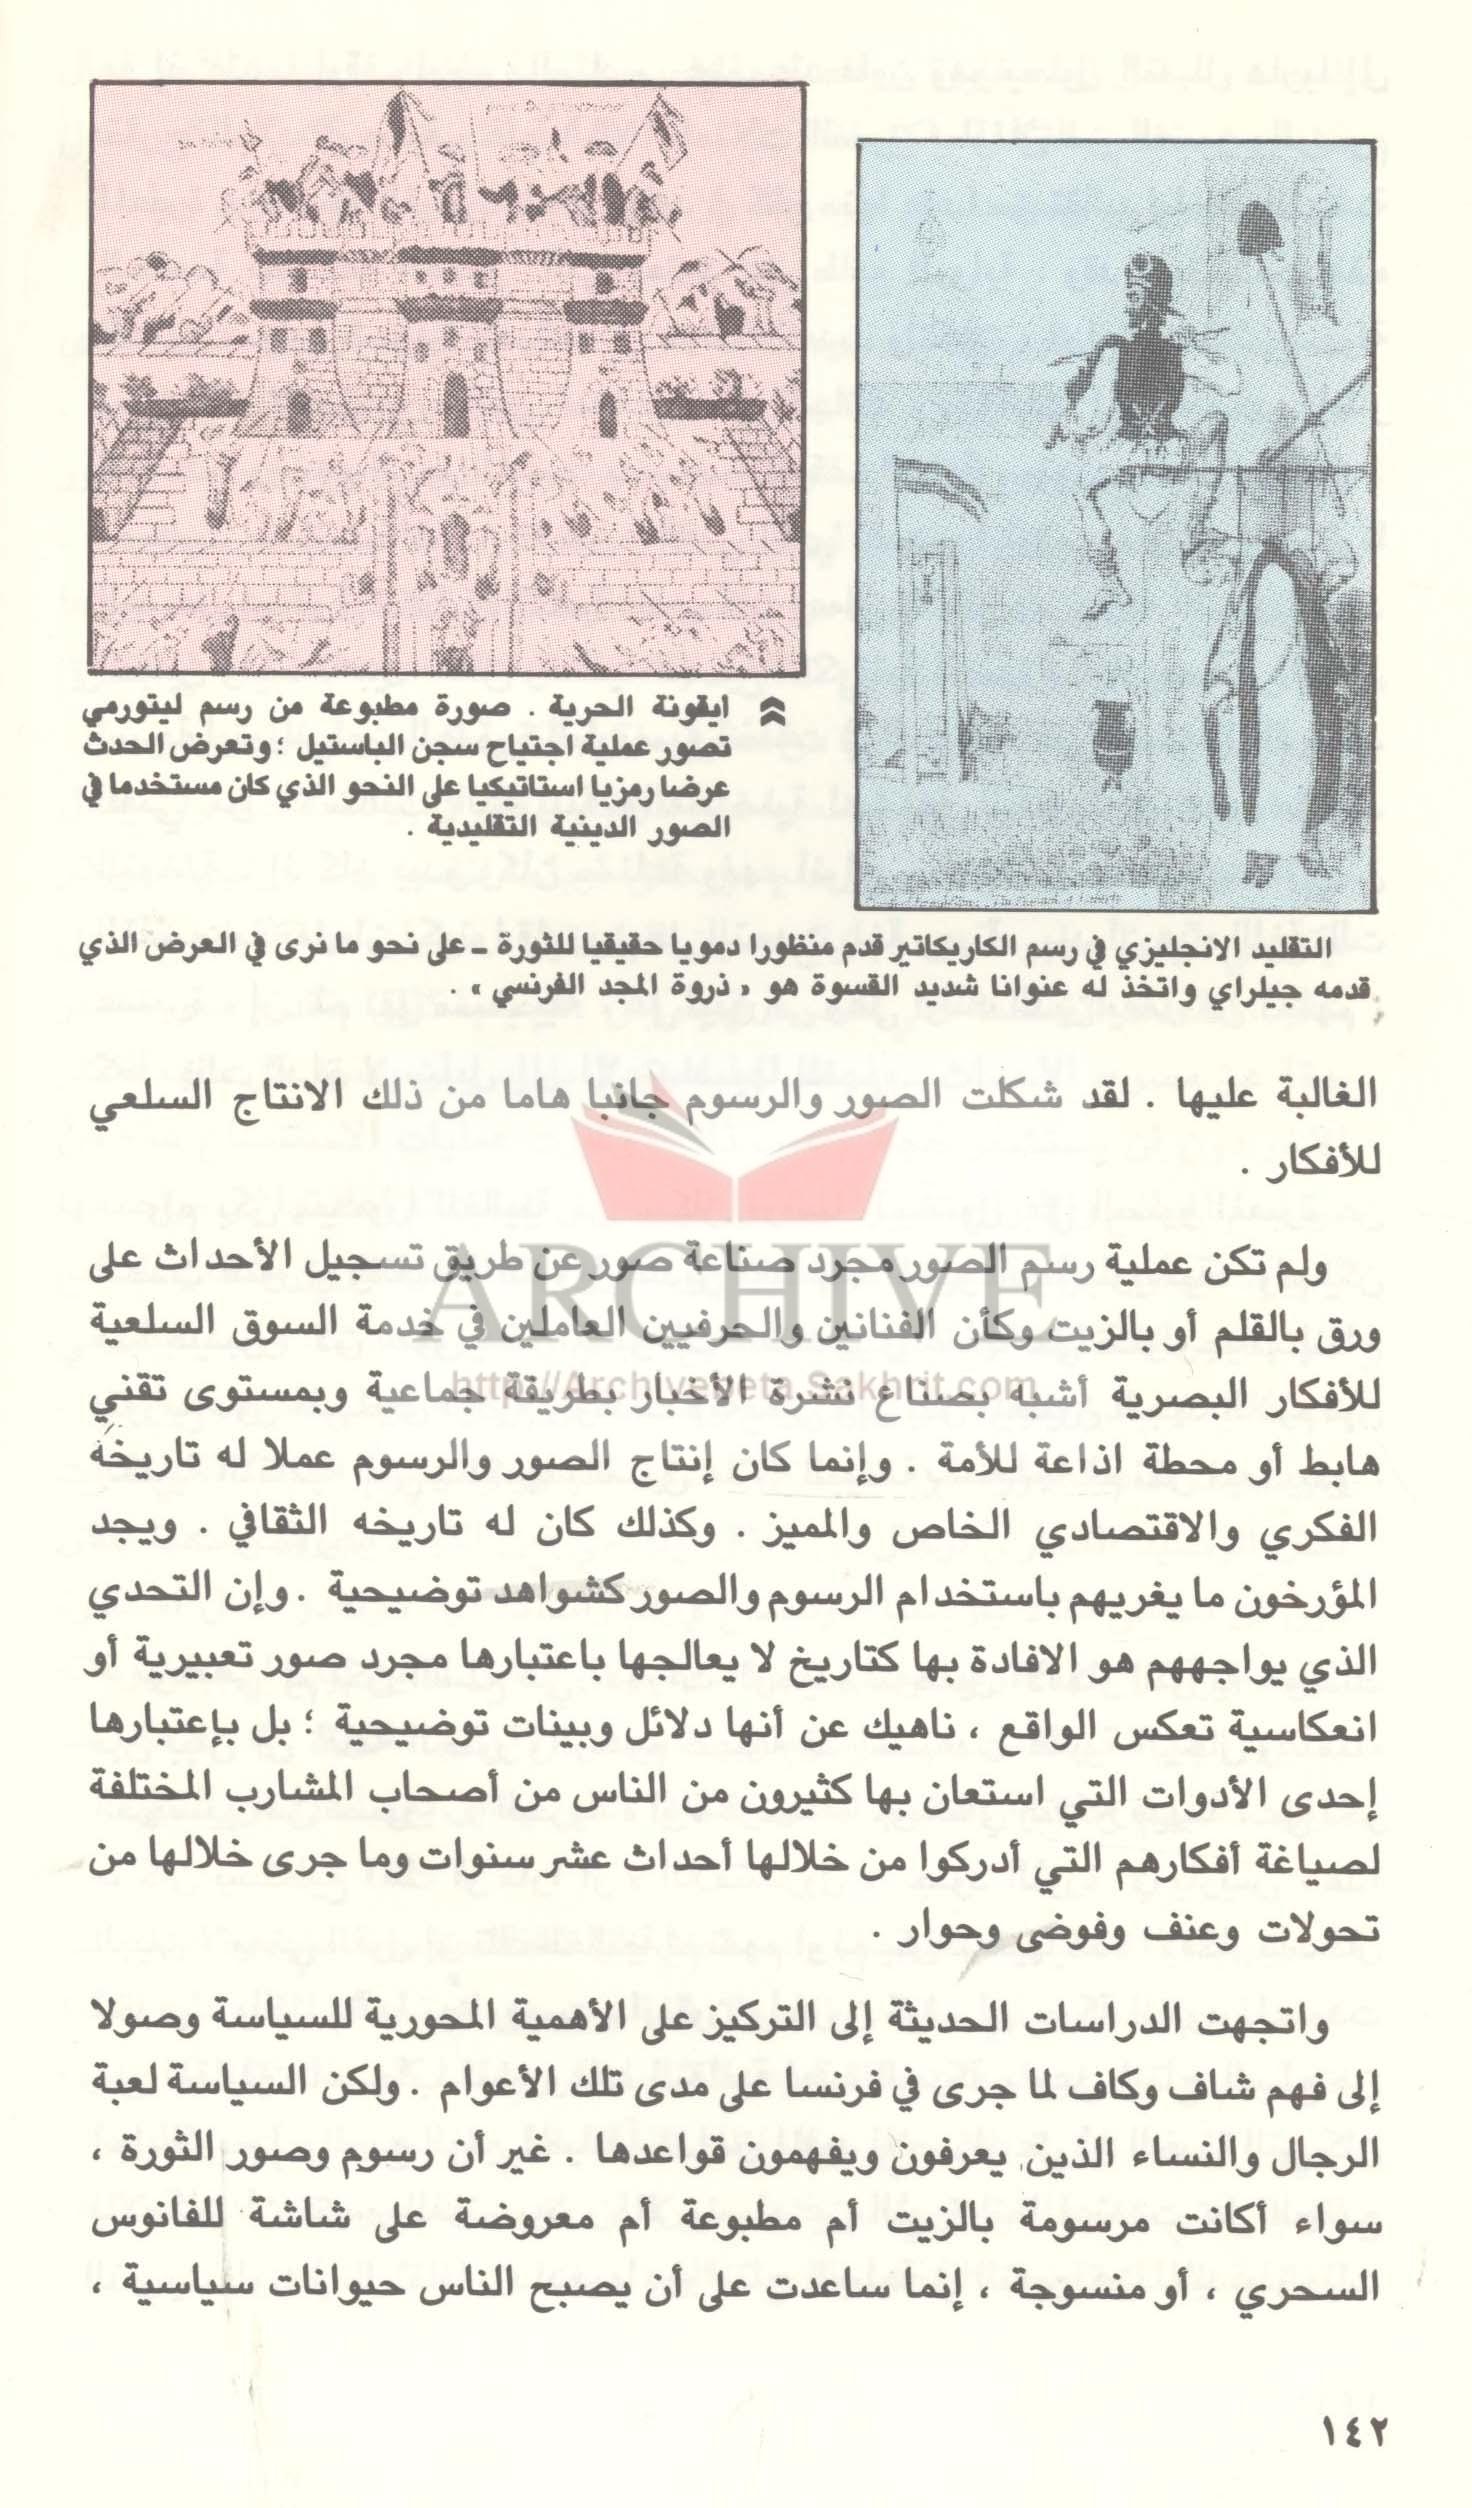 ايقونة الحرية . صورة مطبوعة من رسم ليتورمي
تصور عملية اجتياح سجن الباستيل ؛ وتعرض الحدث
عرضا رمزيا استاتيكيا على النحو الذي كان مستخدما في
الصور الدينية التقليدية .
التقليد الانجليزي في رسم الكاريكاتير قدم منظورا دمويا حقيقيا للثورة ـ على نحو ما نرى في العرض الذي
قدمه جيلراي واتخذ له عنوانا شديد القسوة هو « ذروة المجد الفرنسي » .
الغالبة عليها . لقد شكلت الصور والرسوم جانبا هاما من ذلك الانتاج السلعي
للأفكار .
ولم تكن عملية رسم الصور مجرد صناعة صور عن طريق تسجيل الأحداث على
ورق بالقلم أو بالزيت وكأن الفنانين والحرفيين العاملين في خدمة السوق السلعية
للأفكار البصرية أشبه بصناع نشرة الأخبار بطريقة جماعية وبمستوى تقني
هابط أو محطة اذاعة للأمة . وإنما كان إنتاج الصور والرسوم عملا له تاريخه
الفكري والاقتصادي الخاص والمميز . وكذلك كان له تاريخه الثقافي . ويجد
المؤرخون ما يغريهم باستخدام الرسوم والصور كشواهد توضيحية . وإن التحدي
الذي يواجههم هو الافادة بها كتاريخ لا يعالجها باعتبارها مجرد صور تعبيرية أو
انعكاسية تعكس الواقع ، ناهيك عن أنها دلائل وبينات توضيحية ؛ بل بإعتبارها
إحدى الأدوات التي استعان بها كثيرون من الناس من أصحاب المشارب المختلفة
لصياغة أفكارهم التي أدركوا من خلالها أحداث عشر سنوات وما جرى خلالها من
تحولات وعنف وفوضى وحوار .
واتجهت الدراسات الحديثة إلى التركيز على الأهمية المحورية للسياسة وصولا
إلى فهم شاف وكاف لما جرى في فرنسا على مدى تلك الأعوام . ولكن السياسة لعبة
الرجال والنساء الذين يعرفون ويفهمون قواعدها . غير أن رسوم وصور الثورة ،
سواء أكانت مرسومة بالزيت أم مطبوعة أم معروضة على شاشة للفانوس
السحري ، أو منسوجة ، إنما ساعدت على أن يصبح الناس حيوانات سياسية ،
١٤٢
ARCHIVE
http://Archivebeta.Sakhrit.com